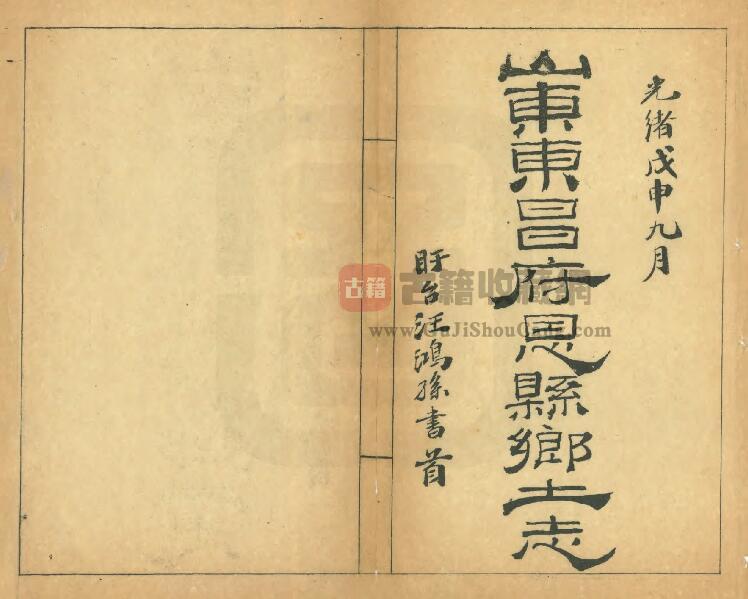 光緒戊申九月
山東東昌府恩縣鄉土志
盱台汪鴻孫書首
古籍
古籍收藏網
www.GuJiShouCang.com